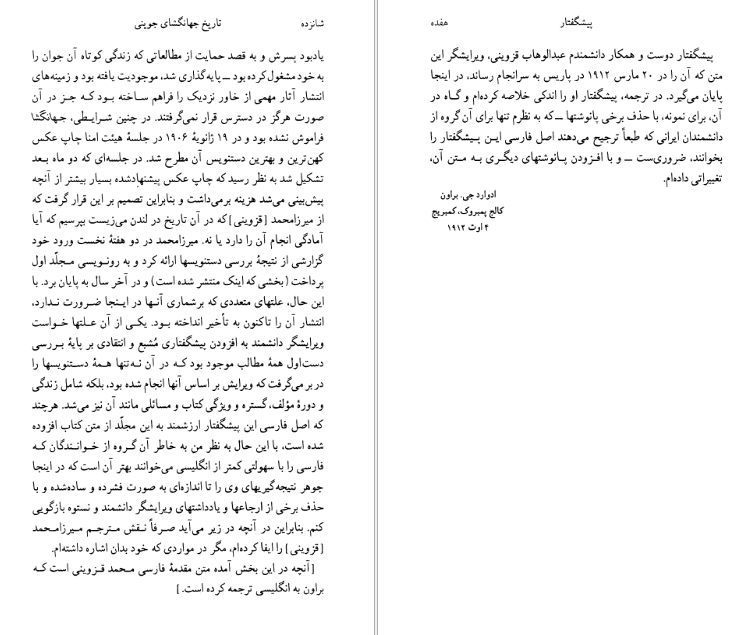 شانزده
تاریخ جهانگشای جوینی
یادبود پسرش و به قصد حمایت از مطالعاتی که زندگی کوتاه آن جوان را
به خود مشغول کرده بود ـ پایه‌گذاری شد، موجودیت یافته بود و زمینه‌های
انتشار آثار مهمی از خاور نزدیک را فراهم ساخته بود که جز در آن
صورت هرگز در دسترس قرار نمی‌گرفتند. در چنین شرایطی، جهانگشا
فراموش نشده بود و در ۱۹ ژانویهٔ ۱۹۰۶ در جلسهٔ هیئت امنا چاپ عکس
کهن‌ترین و بهترین دستنویس آن مطرح شد. در جلسه‌ای که دو ماه بعد
تشکیل شد به نظر رسید که چاپ عکس پیشنهادشده بسیار بیشتر از آنچه
پیش‌بینی می‌شد هزینه برمی‌داشت و بنابراین تصمیم بر این قرار گرفت که
از میرزامحمد [قزوینی] که در آن تاریخ در لندن می‌زیست بپرسیم که آیا
آمادگی انجام آن را دارد یا نه. میرزامحمد در دو هفتهٔ نخست ورود خود
گزارشی از نتیجهٔ بررسی دستنویسها ارائه کرد و به رونویسی مجلّد اول
پرداخت (بخشی که اینک منتشر شده است) و در آخر سال به پایان برد. با
این حال، علتهای متعددی که برشماری آنها در اینجا ضرورت ندارد،
انتشار آن را تاکنون به تأخیر انداخته بود. یکی از آن علتها خواست
ویرایشگر دانشمند به افزودن پیشگفتاری مُشبع و انتقادی بر پایهٔ بررسی
دست‌اول همهٔ مطالب موجود بود که در آن نه‌تنها همهٔ دستنویسها را
در بر می‌گرفت که ویرایش بر اساس آنها انجام شده بود، بلکه شامل زندگی
و دورهٔ مؤلف، گستره و ویژگی کتاب و مسائلی مانند آن نیز می‌شد. هرچند
که اصل فارسی این پیشگفتار ارزشمند به این مجلّد از متن کتاب افزوده
شده است، با این حال به نظر من به خاطر آن گروه از خوانندگان که
فارسی را با سهولتی کمتر از انگلیسی می‌خوانند بهتر آن است که در اینجا
جوهر نتیجه‌گیریهای وی را تا اندازه‌ای به صورت فشرده و ساده‌شده و با
حذف برخی از ارجاعها و یادداشتهای ویرایشگر دانشمند و نستوه بازگویی
کنم. بنابراین در آنچه در زیر می‌آید صرفاً نقش مترجم میرزامحمد
[قزوینی] را ایفا کرده‌ام، مگر در مواردی که خود بدان اشاره داشته‌ام.
[آنچه در این بخش آمده متن مقدمهٔ فارسی محمد قزوینی است که
براون به انگلیسی ترجمه کرده است.]
پیشگفتار
هفده
پیشگفتار دوست و همکار دانشمندم عبدالوهاب قزوینی، ویرایشگر این
متن که آن را در ۲۰ مارس ۱۹۱۲ در پاریس به سرانجام رساند، در اینجا
پایان می‌گیرد. در ترجمه، پیشگفتار او را اندکی خلاصه کرده‌ام و گاه در
آن، برای نمونه، با حذف برخی پانوشتها ـ که به نظرم تنها برای آن گروه از
دانشمندان ایرانی که طبعاً ترجیح می‌دهند اصل فارسی این پیشگفتار را
بخوانند، ضروری‌ست ـ و با افزودن پانوشتهای دیگری به متن آن،
تغییراتی داده‌ام.
ادوارد جی. براون
کالج پمبروک، کمبریج
۴ اوت ۱۹۱۲